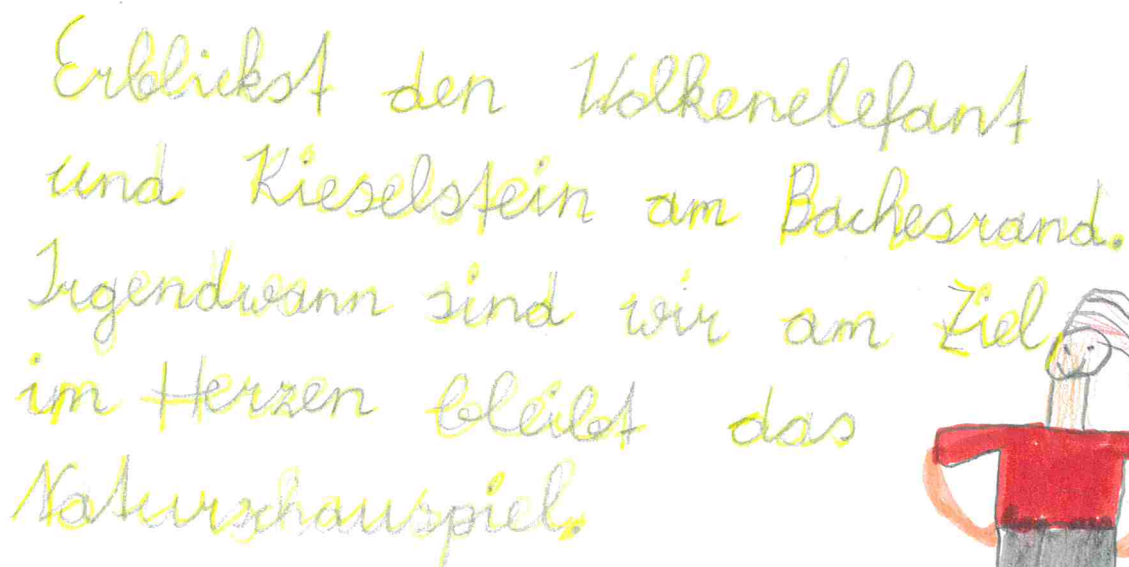 Erblickst den Wolkenelefant
und Kieselstein am Bachesrand.
Irgendwann sind wir am Ziel,
im Herzen bleibt das
Naturschauspiel.